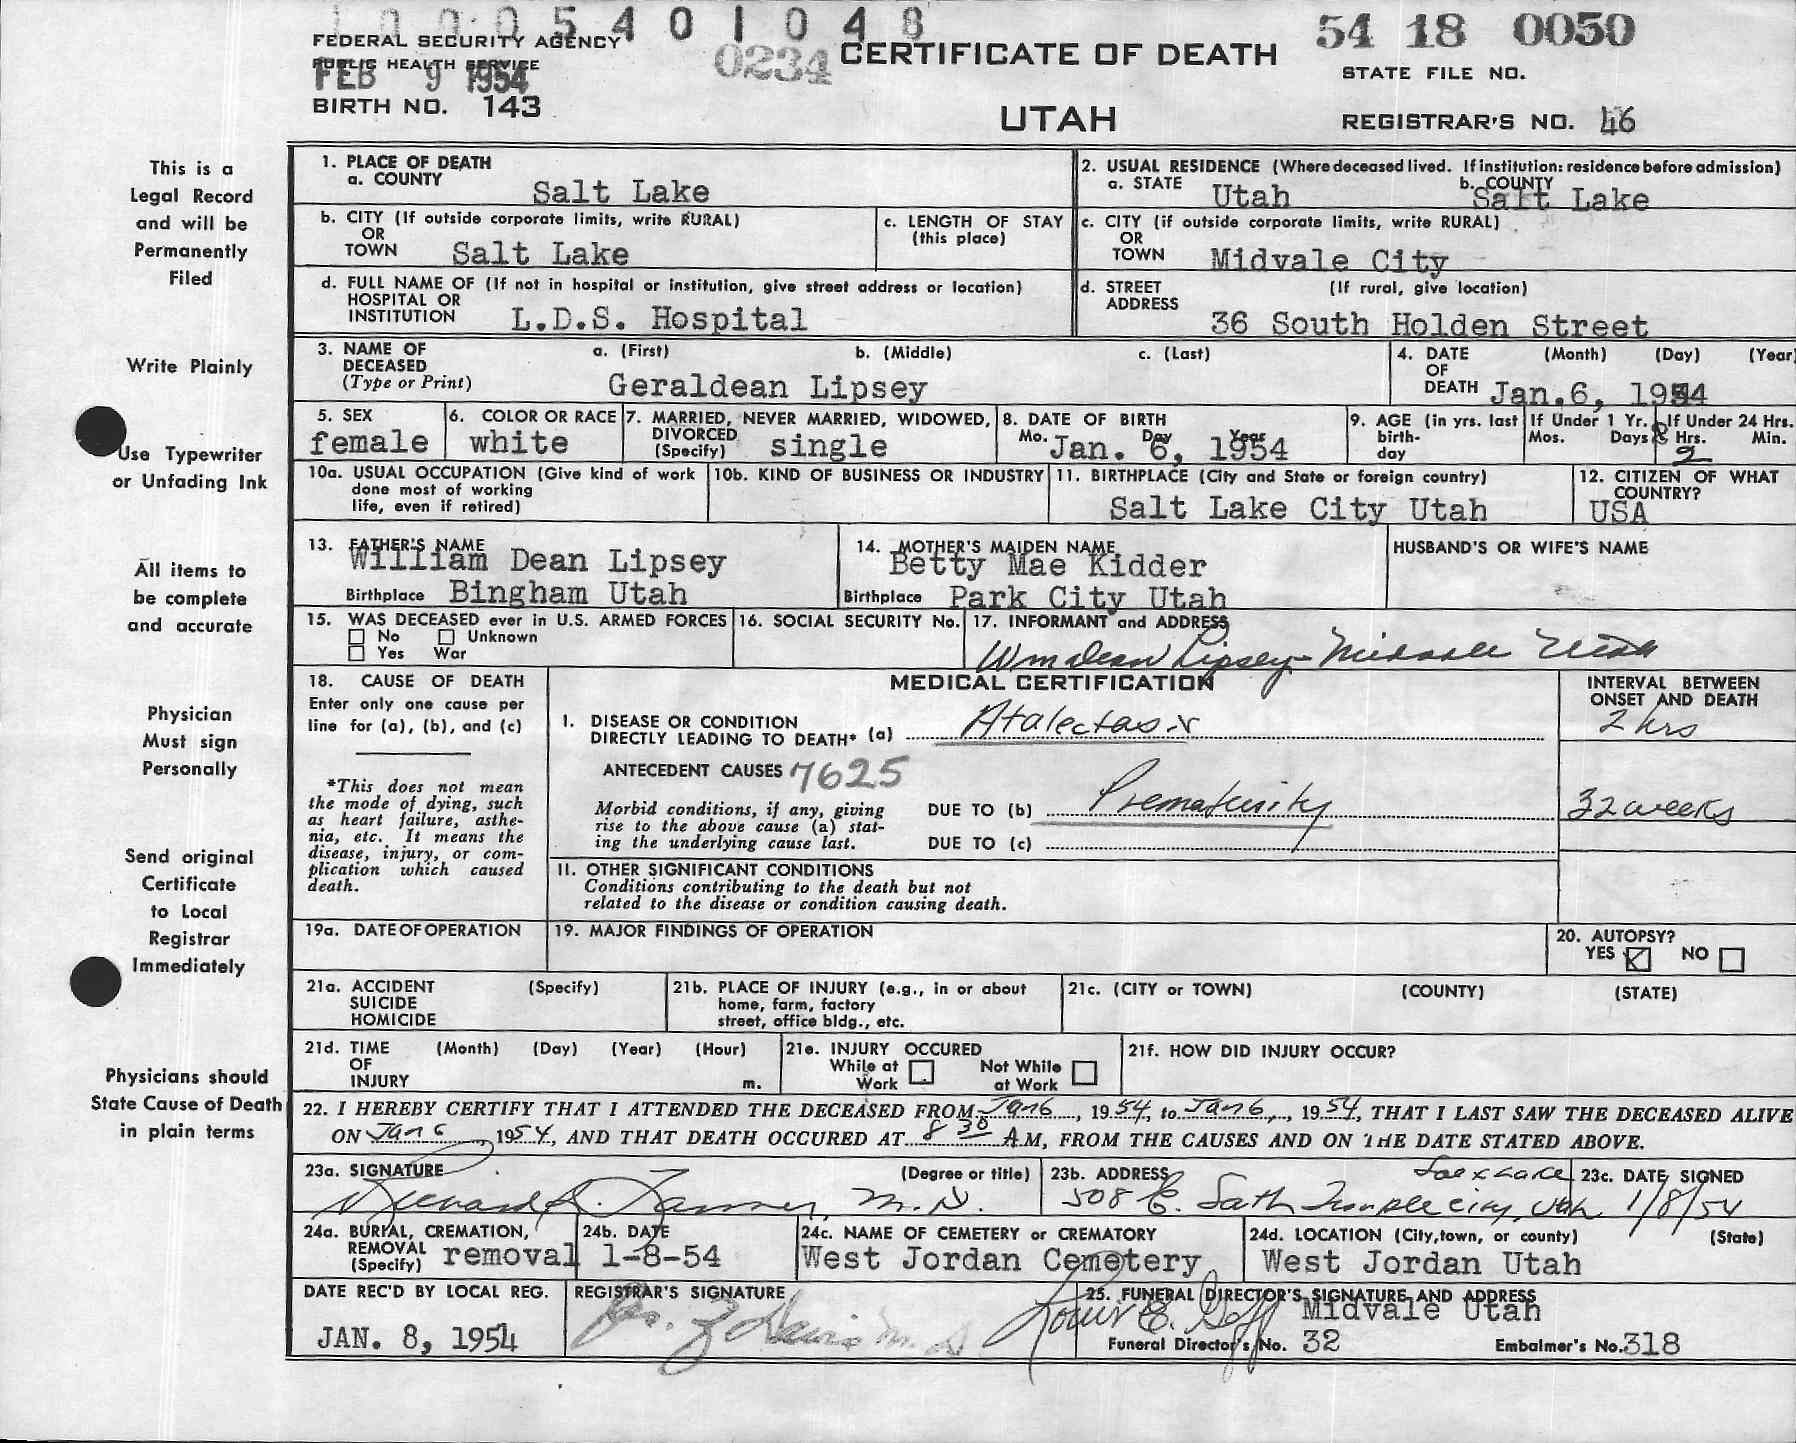 1 0 0 0 5 4 0 1 0 4 8
FEDERAL SECURITY AGENCY
PUBLIC HEALTH SERVICE
FEB 9 1954
BIRTH NO. 143
0234
CERTIFICATE OF DEATH
UTAH
54 18 0050
STATE FILE NO.
REGISTRAR'S NO. 46
This is a
Legal Record
and will be
Permanently
Filed
Write Plainly
Use Typewriter
or Unfading Ink
All items to
be complete
and accurate
Physician
Must sign
Personally
Send original
Certificate
to Local
Registrar
Immediately
Physicians should
State Cause of Death
in plain terms
1. PLACE OF DEATH
a. COUNTY Salt Lake
2. USUAL RESIDENCE (Where deceased lived. If institution: residence before admission)
a. STATE Utah b. COUNTY Salt Lake
b. CITY (If outside corporate limits, write RURAL)
OR
TOWN Salt Lake
c. LENGTH OF STAY
(this place)
c. CITY (if outside corporate limits, write RURAL)
OR
TOWN Midvale City
d. FULL NAME OF (If not in hospital or institution, give street address or location)
HOSPITAL OR
INSTITUTION L.D.S. Hospital
d. STREET (If rural, give location)
ADDRESS
36 South Holden Street
3. NAME OF DECEASED (Type or Print)
a. (First) b. (Middle) c. (Last)
Geraldean Lipsey
4. DATE OF DEATH (Month) (Day) (Year)
Jan. 6, 1954
5. SEX
female
6. COLOR OR RACE
white
7. MARRIED, NEVER MARRIED, WIDOWED,
DIVORCED
(Specify) single
8. DATE OF BIRTH
Mo. Day Year
Jan. 6, 1954
9. AGE (in yrs. last
birth-
day
If Under 1 Yr.
Mos. Days
If Under 24 Hrs.
Hrs. Min.
2
10a. USUAL OCCUPATION (Give kind of work
done most of working
life, even if retired)
10b. KIND OF BUSINESS OR INDUSTRY
11. BIRTHPLACE (City and State or foreign country)
Salt Lake City Utah
12. CITIZEN OF WHAT
COUNTRY?
USA
13. FATHER'S NAME
William Dean Lipsey
Birthplace Bingham Utah
14. MOTHER'S MAIDEN NAME
Betty Mae Kidder
Birthplace Park City Utah
HUSBAND'S OR WIFE'S NAME
15. WAS DECEASED ever in U.S. ARMED FORCES
No Unknown
Yes War
16. SOCIAL SECURITY No.
17. INFORMANT and ADDRESS
Wm Dean Lipsey - Midvale Utah
18. CAUSE OF DEATH
Enter only one cause per
line for (a), (b), and (c)
*This does not mean
the mode of dying, such
as heart failure, asthe-
nia, etc. It means the
disease, injury, or com-
plication which caused
death.
MEDICAL CERTIFICATION
INTERVAL BETWEEN
ONSET AND DEATH
I. DISEASE OR CONDITION
DIRECTLY LEADING TO DEATH* (a) Atalectasis
2 hrs
ANTECEDENT CAUSES 7625
Morbid conditions, if any, giving
rise to the above cause (a) stat-
ing the underlying cause last.
DUE TO (b) Prematurity
32 weeks
DUE TO (c)
II. OTHER SIGNIFICANT CONDITIONS
Conditions contributing to the death but not
related to the disease or condition causing death.
19a. DATE OF OPERATION
19. MAJOR FINDINGS OF OPERATION
20. AUTOPSY?
YES NO
21a. ACCIDENT (Specify)
SUICIDE
HOMICIDE
21b. PLACE OF INJURY (e.g., in or about
home, farm, factory
street, office bldg., etc.
21c. (CITY or TOWN) (COUNTY) (STATE)
21d. TIME (Month) (Day) (Year) (Hour)
OF
INJURY m.
21e. INJURY OCCURED
While at Work Not While at Work
21f. HOW DID INJURY OCCUR?
22. I HEREBY CERTIFY THAT I ATTENDED THE DECEASED FROM Jan 6, 1954, to Jan 6, 1954, THAT I LAST SAW THE DECEASED ALIVE
ON Jan 6, 1954, AND THAT DEATH OCCURED AT 8 30 A.M, FROM THE CAUSES AND ON THE DATE STATED ABOVE.
23a. SIGNATURE (Degree or title)
Tanner, M.D.
23b. ADDRESS
508 E. South Temple City, Utah
Salt Lake
23c. DATE SIGNED
1/8/54
24a. BURIAL, CREMATION,
REMOVAL
(Specify) removal
24b. DATE
1-8-54
24c. NAME OF CEMETERY or CREMATORY
West Jordan Cemetery
24d. LOCATION (City, town, or county) (State)
West Jordan Utah
DATE REC'D BY LOCAL REG.
JAN. 8, 1954
REGISTRAR'S SIGNATURE
25. FUNERAL DIRECTOR'S SIGNATURE AND ADDRESS
Midvale Utah
Funeral Director's No. 32 Embalmer's No. 318